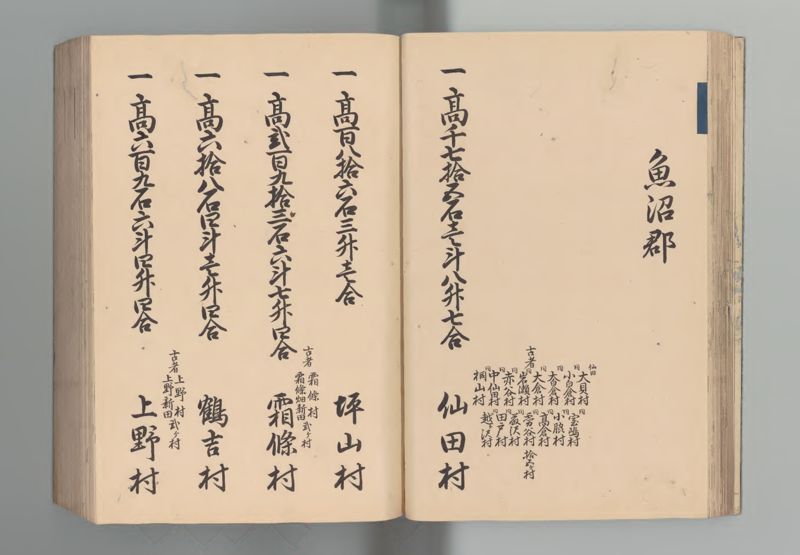 魚沼郡
仙田
同大貝村
同小白倉村 同室嶋村
同大倉村 同小脇村
古者 同大倉村 同高倉村
同岩瀬村 同霜谷村 拾五ヶ村
同赤谷村 同藤沢村
同中仙田村 同田戸村
同桐山村 同越ヶ沢村
一高千七拾五石壱斗八升七合 仙田村
一高百八拾六石三升壱合 坪山村
古者 霜條村
霜條畑新田 弐ヶ村
一高弐百九拾三石六斗七升四合 霜條村
一高六拾八石四斗壱升四合 鶴吉村
古者 上野村
上野新田 弐ヶ村
一高六百九石六斗四升四合 上野村